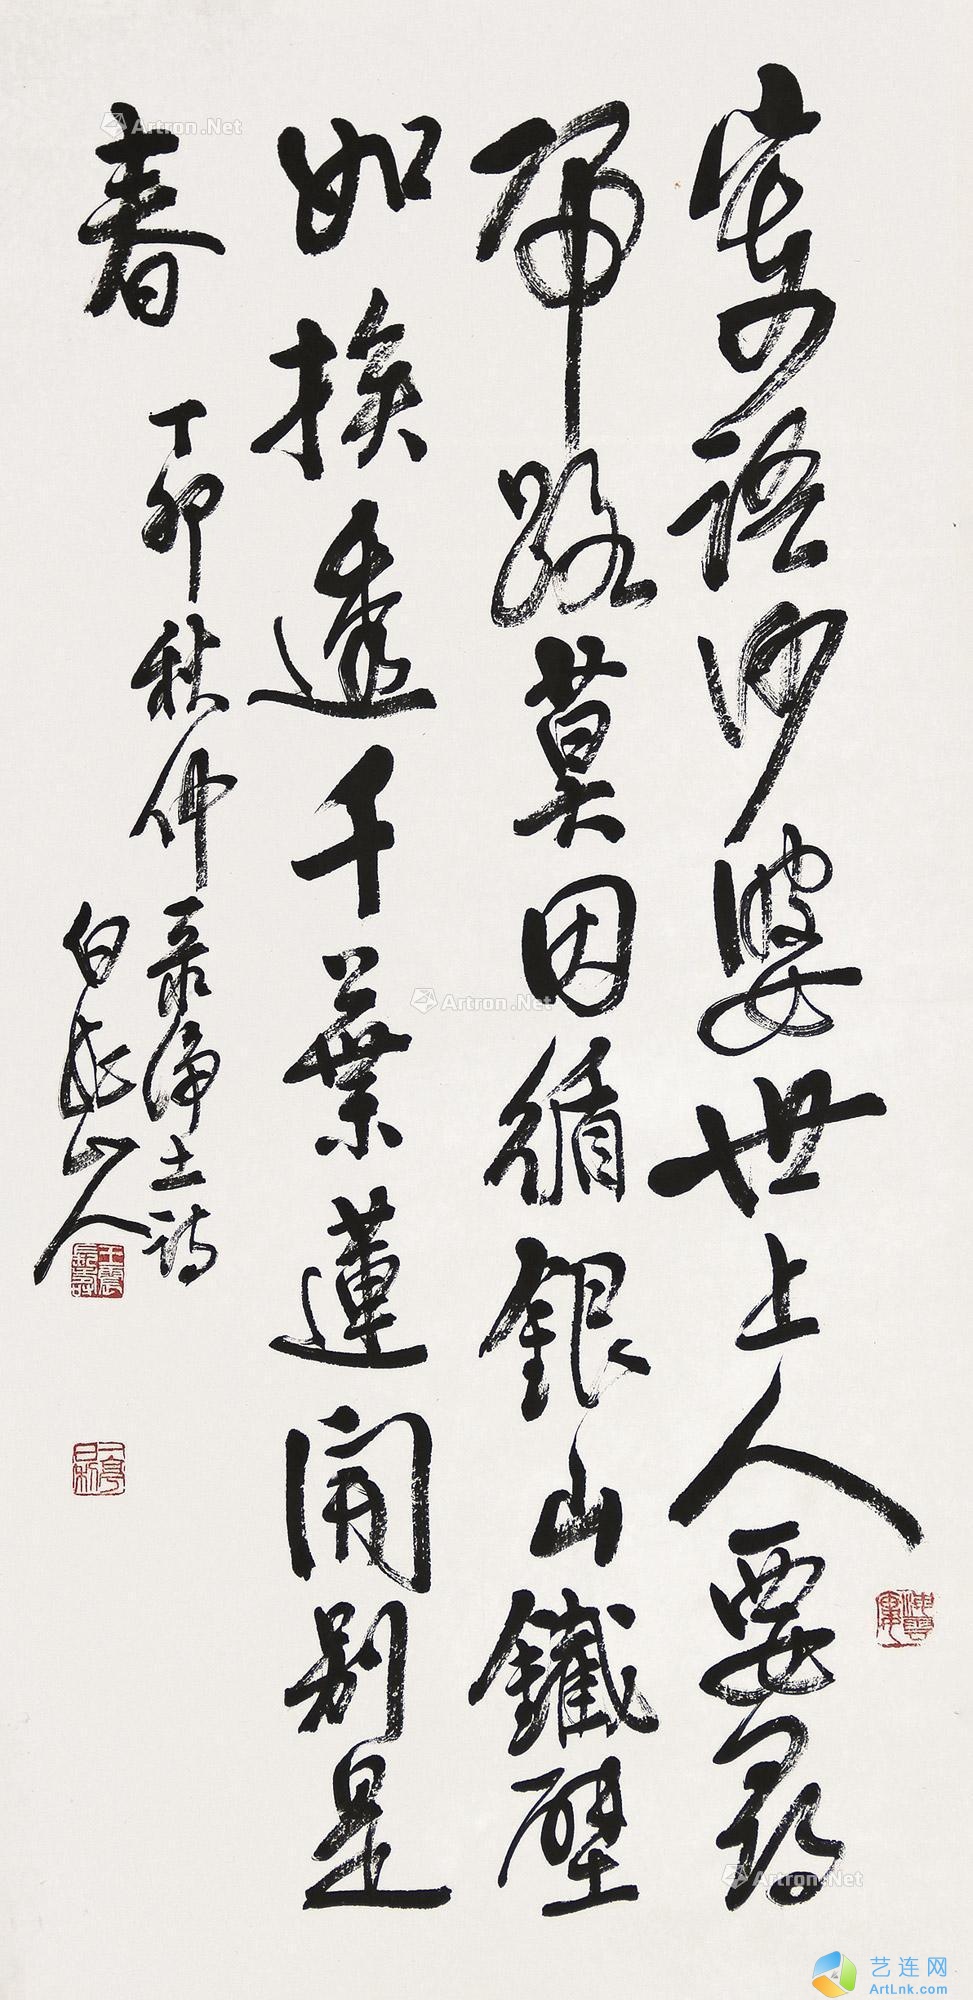 寄語沙婆世上人要尋
歸路莫因循銀山鐵壁
如挨透千葉蓮開別是
春
丁卯秋仲录淨土詩
白龍山人
王震長壽
一亭日利
Artron.Net
Artron.Net
Artron.Net
艺连网
ArtLnk.com